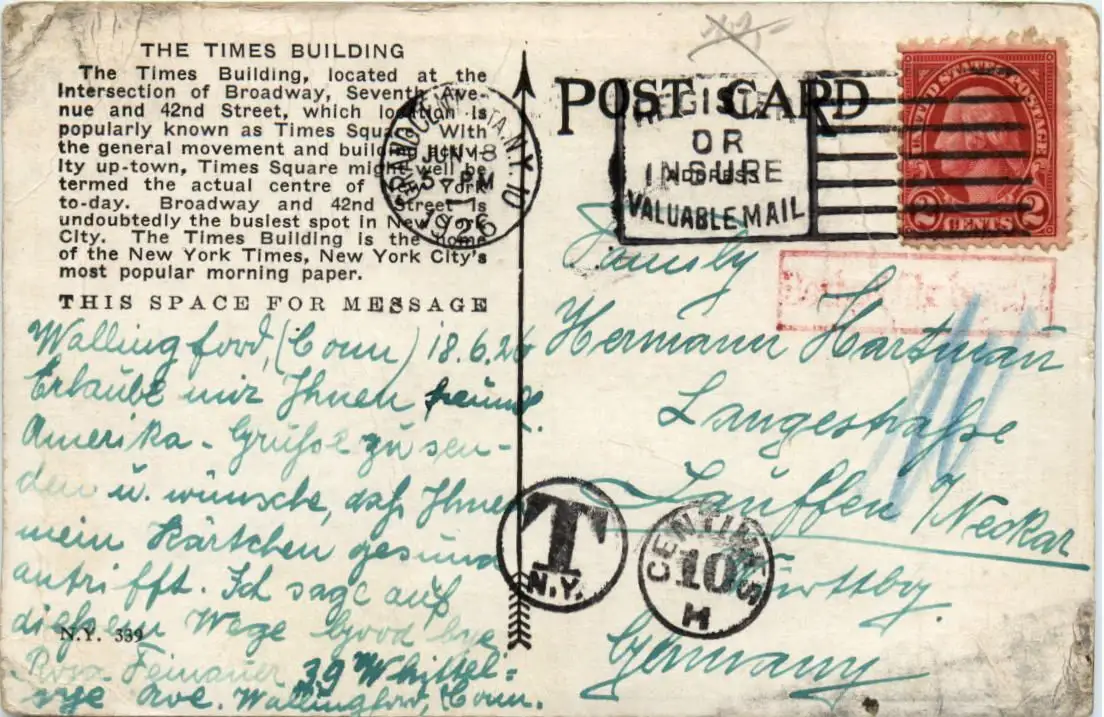 THE TIMES BUILDING
The Times Building, located at the
Intersection of Broadway, Seventh Ave-
nue and 42nd Street, which location is
popularly known as Times Square. With
the general movement and building activ-
ity up-town, Times Square might well be
termed the actual centre of New York
to-day. Broadway and 42nd Street is
undoubtedly the busiest spot in New York
City. The Times Building is the home
of the New York Times, New York City's
most popular morning paper.
THIS SPACE FOR MESSAGE
Wallingford, (Conn) 18.6.26
Erlaube mir Ihnen freundl.
Amerika-Grüße zu sen-
den u. wünsche, daß Ihnen
mein Kärtchen gesund
antrifft. Ich sage auf
dießem Wege Good bye
Rosa Feinauer 39 Whittel=
sye Ave. Wallingford, Conn.
N.Y. 339
POST CARD
STA. N.Y. 10
JUN 18
5 PM
1926
REGISTER
OR
INSURE
VALUABLE MAIL
UNITED STATES POSTAGE
2 CENTS 2
Family
Hermann Hartman
Langestraße
Lauffen a/Neckar
Württbg.
Germany
T
N.Y.
CENTIMES
10
M